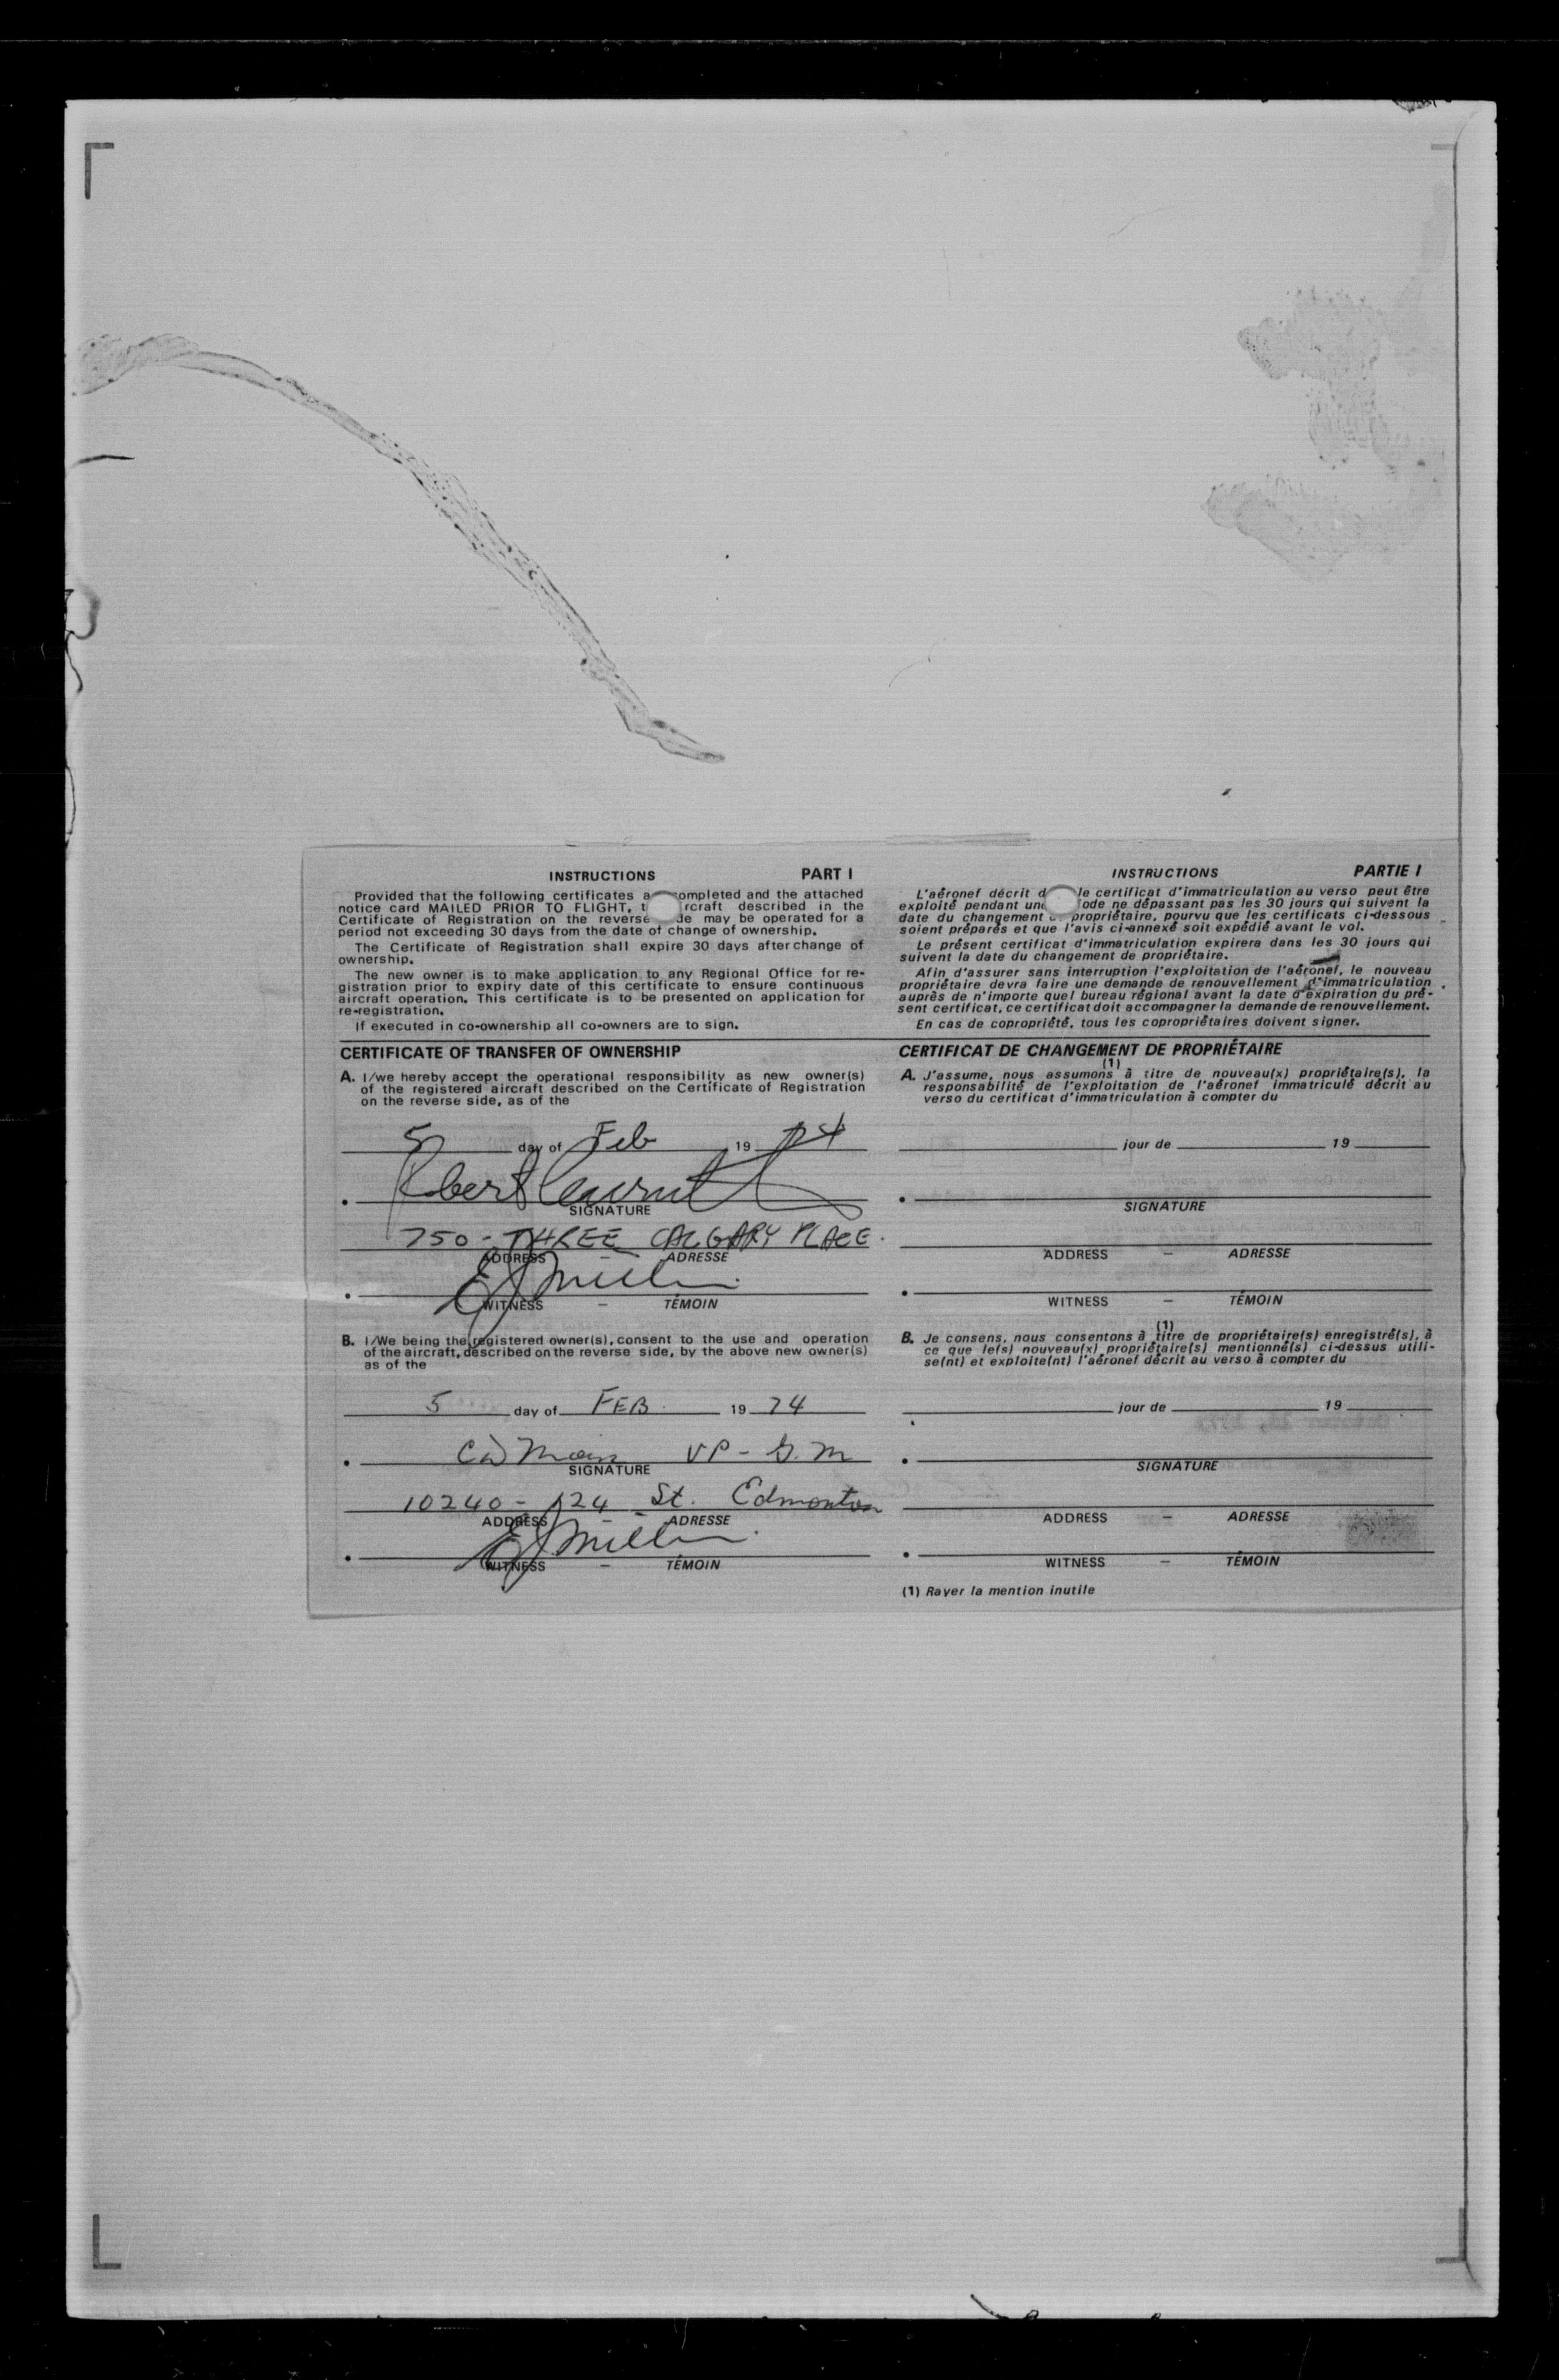 INSTRUCTIONS PART I
Provided that the following certificates a ompleted and the attached
notice card MAILED PRIOR TO FLIGHT, t rcraft described in the
Certificate of Registration on the reverse de may be operated for a
period not exceeding 30 days from the date of change of ownership.
The Certificate of Registration shall expire 30 days after change of
ownership.
The new owner is to make application to any Regional Office for re-
gistration prior to expiry date of this certificate to ensure continuous
aircraft operation. This certificate is to be presented on application for
re-registration.
If executed in co-ownership all co-owners are to sign.
CERTIFICATE OF TRANSFER OF OWNERSHIP
A. I/we hereby accept the operational responsibility as new owner(s)
of the registered aircraft described on the Certificate of Registration
on the reverse side, as of the
5 day of Feb 19 74
Robert
SIGNATURE
750 - THREE CALGARY PLACE.
ADDRESS - ADRESSE
WITNESS - TÉMOIN
B. I/We being the registered owner(s), consent to the use and operation
of the aircraft, described on the reverse side, by the above new owner(s)
as of the
5 day of FEB. 19 74
VP - G.M
SIGNATURE
10240 - 124 St. Edmonton
ADDRESS - ADRESSE
WITNESS - TÉMOIN
INSTRUCTIONS PARTIE I
L'aéronef décrit d le certificat d'immatriculation au verso peut être
exploité pendant une iode ne dépassant pas les 30 jours qui suivent la
date du changement propriétaire, pourvu que les certificats ci-dessous
soient préparés et que l'avis ci-annexé soit expédié avant le vol.
Le présent certificat d'immatriculation expirera dans les 30 jours qui
suivent la date du changement de propriétaire.
Afin d'assurer sans interruption l'exploitation de l'aéronef, le nouveau
propriétaire devra faire une demande de renouvellement d'immatriculation
auprès de n'importe quel bureau régional avant la date d'expiration du pré-
sent certificat, ce certificat doit accompagner la demande de renouvellement.
En cas de copropriété, tous les copropriétaires doivent signer.
CERTIFICAT DE CHANGEMENT DE PROPRIÉTAIRE
(1)
A. J'assume, nous assumons à titre de nouveau(x) propriétaire(s), la
responsabilité de l'exploitation de l'aéronef immatriculé décrit au
verso du certificat d'immatriculation à compter du
jour de 19
SIGNATURE
ADDRESS - ADRESSE
WITNESS - TÉMOIN
(1)
B. Je consens, nous consentons à titre de propriétaire(s) enregistré(s), à
ce que le(s) nouveau(x) propriétaire(s) mentionné(s) ci-dessus utili-
se(nt) et exploite(nt) l'aéronef décrit au verso à compter du
jour de 19
SIGNATURE
ADDRESS - ADRESSE
WITNESS - TÉMOIN
(1) Rayer la mention inutile